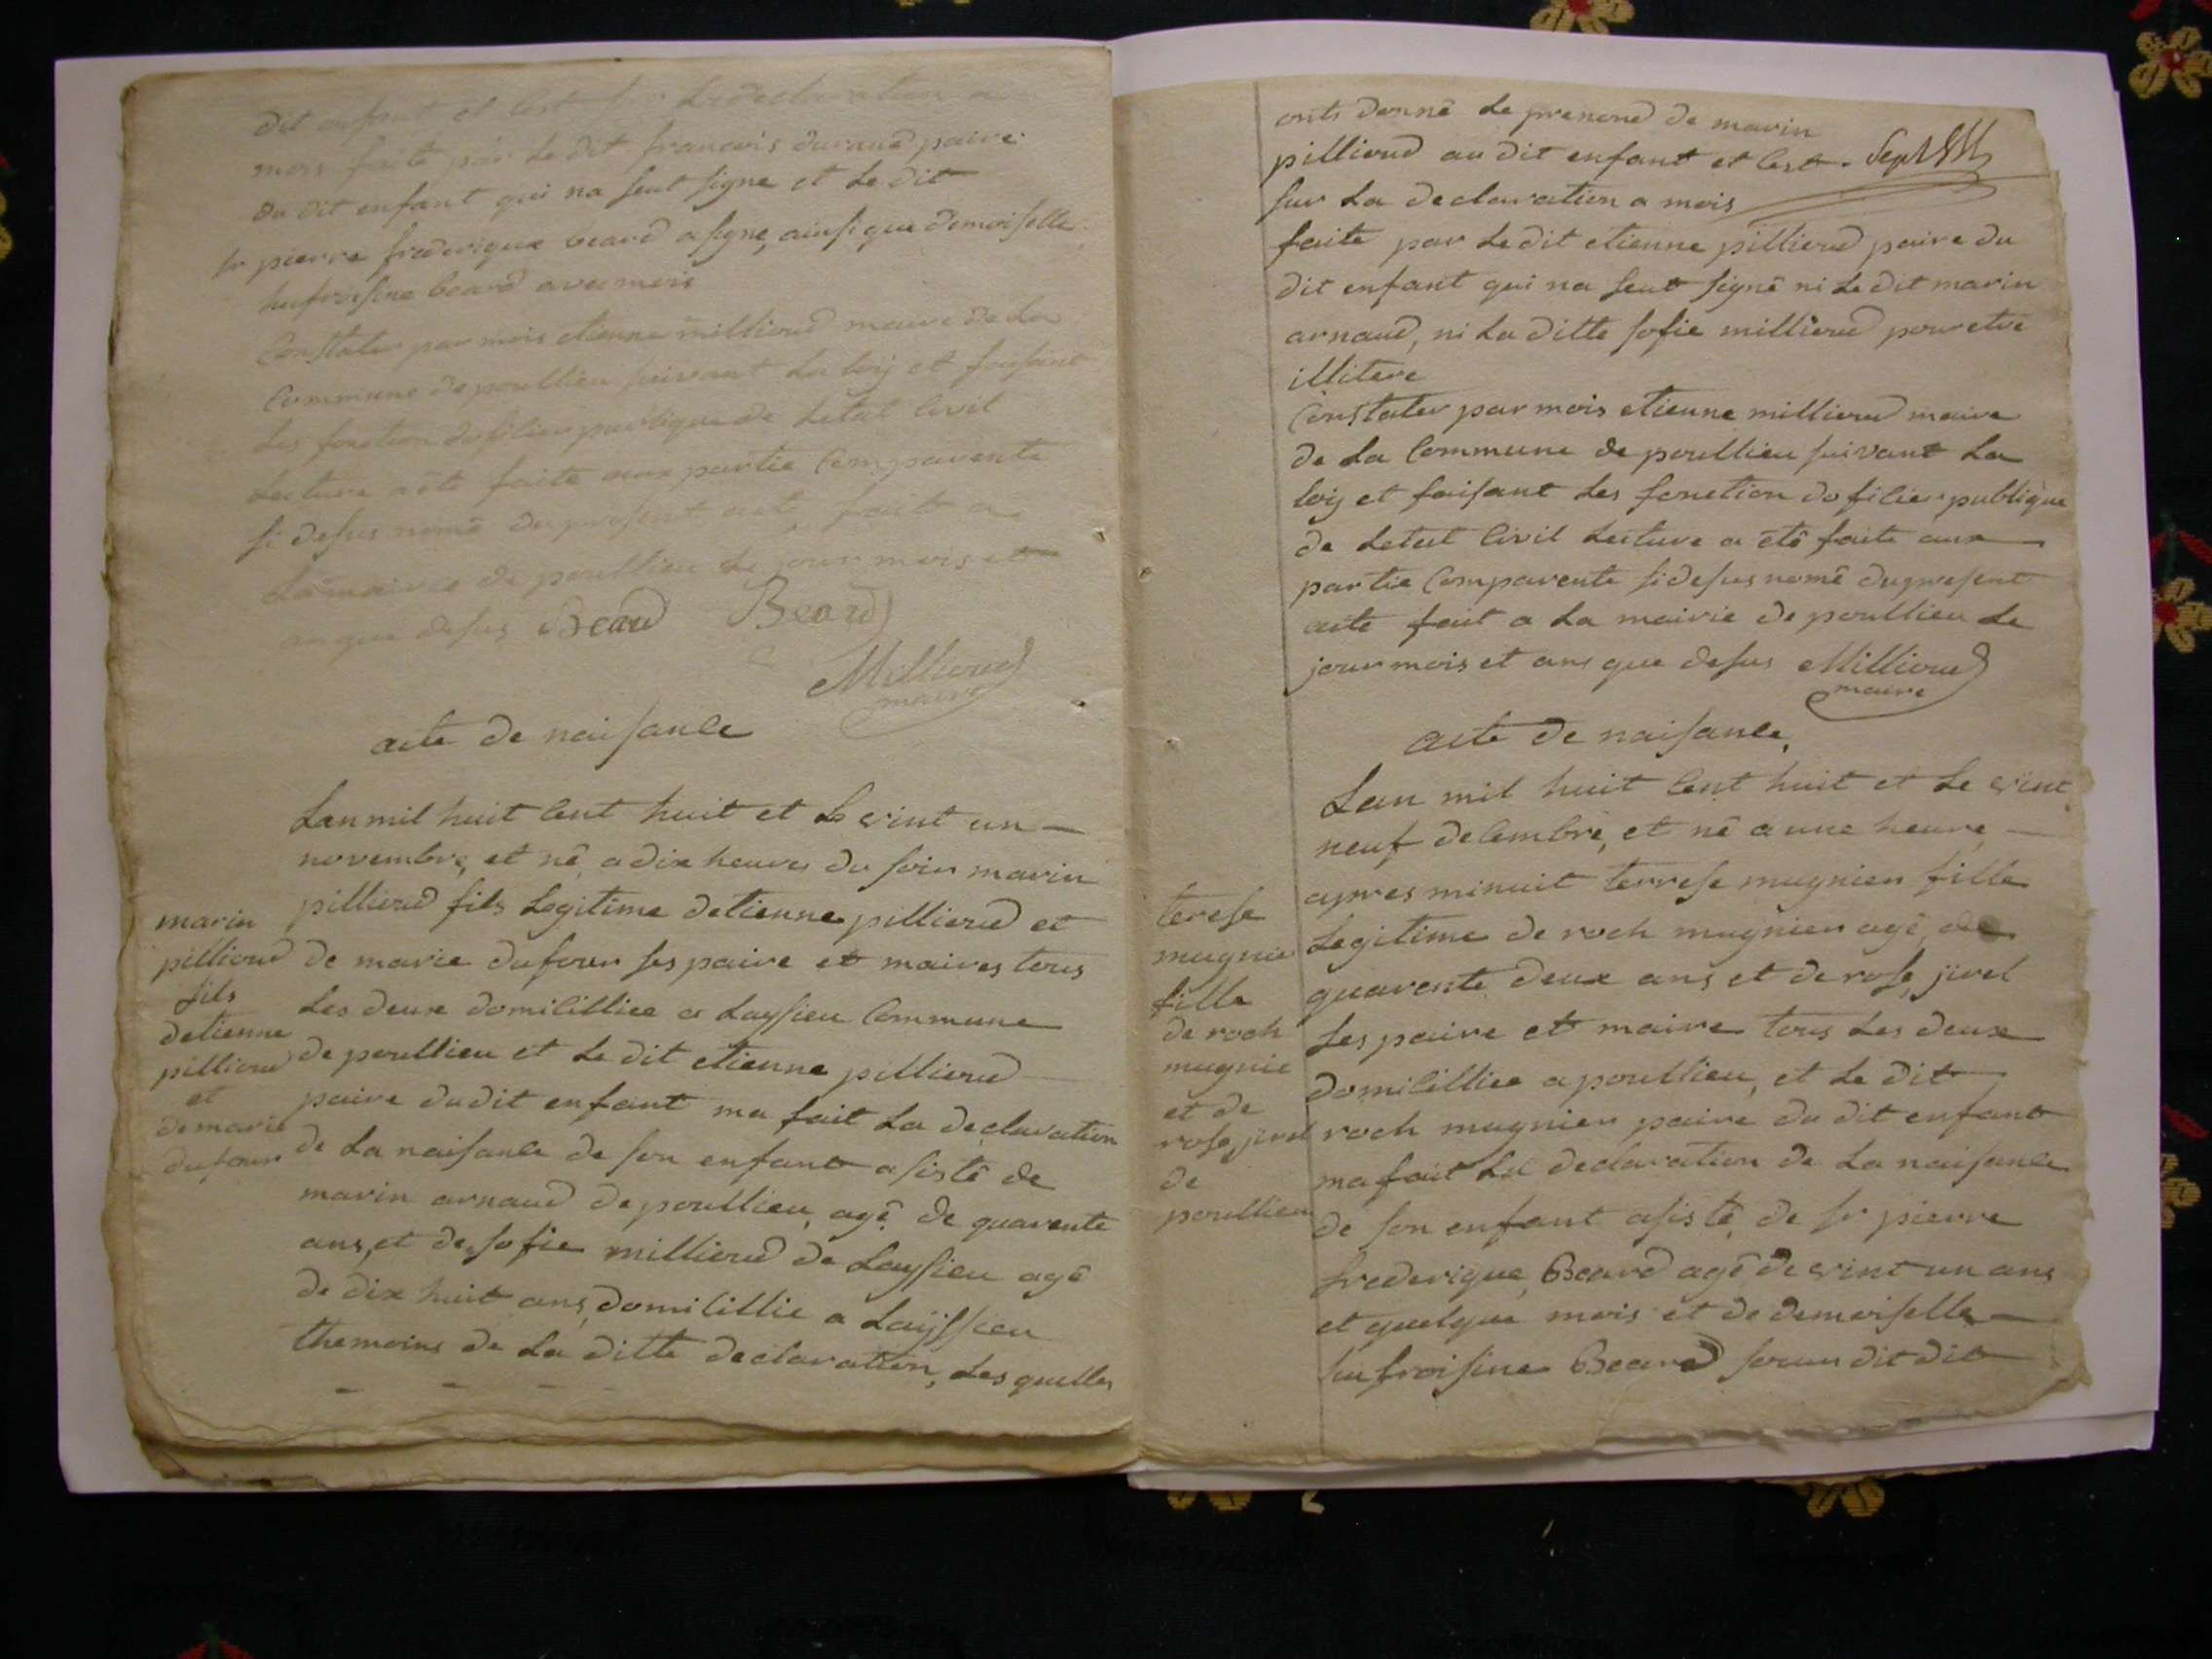 dit enfant et cest sur La declaration a
mois faite par Le dit francois durand paire
du dit enfant qui na seut signe et Le dit
sr pierre frederique beard a signe, ainsi que demoiselle
hufroisine beard avec mois
Constater par mois etienne millioud maire de La
Commune de poullieu suivant La loy et faisant
Les fonction dofilier publique de Letat Civil
Lecture a été faite aux partie Comparente
si desus nomé du present acte, fait a
La mairie de poullieu Le jour mois et
an que desus Beard Beard
Millioud
maire
acte de naisance
Lan mil huit Cent huit et Le vint un
novembre, et né, a dix heures du soir marin
pillioud fils Legitime detienne pillioud et
de marie dufour ses paire et maires tous
Les deux domicilliee a Layssieu Commune
de poullieu et Le dit etienne pillioud
paire du dit enfant ma fait La declaration
de La naisance de son enfant asisté de
marin arnaud de poullieu, agé de quarente
ans, et de sofie millioud de Layssieu agé
de dix huit ans, domicillie a Layssieu
themoins de La ditte declaration, Les quelles
marin
pillioud
fils
detienne
pillioud
et
de marie
dufour
onts donné Le prenond de marin
pillioud au dit enfant et Cest
sur La declaration a mois
faite par Le dit etienne pillioud paire du
dit enfant qui na seut signé ni Le dit marin
arnaud, ni La ditte sofie millioud pour etre
illitere
Constater par mois etienne millioud maire
de La Commune de poullieu suivant La
loy et faisant Les fonction dofilier publique
de Letat Civil Lecture a été faite aux
partie Comparente si desus nomé du present
acte fait a La mairie de poullieu Le
jour mois et ans que desus Millioud
maire
acte de naisance,
Lan mil huit Cent huit et Le vint
neuf decembre, et né a une heure
apres minuit terrese mugnier fille
Legitime de roch mugnier agé, de
quarente deux ans et de rose, jivel
ses paire et maire tous Les deux
domicilliee a poullieu, et Le dit
roch mugnier paire du dit enfant
ma fait La declaration de La naisance
de son enfant asisté, de sr pierre
frederique, Beard agé de vint un ans
et quelque mois et de demoiselle
hufroisine Beard soeur du dit
terese
mugnie
fille
de roch
mugnie
et de
rose jivel
de
poullieu